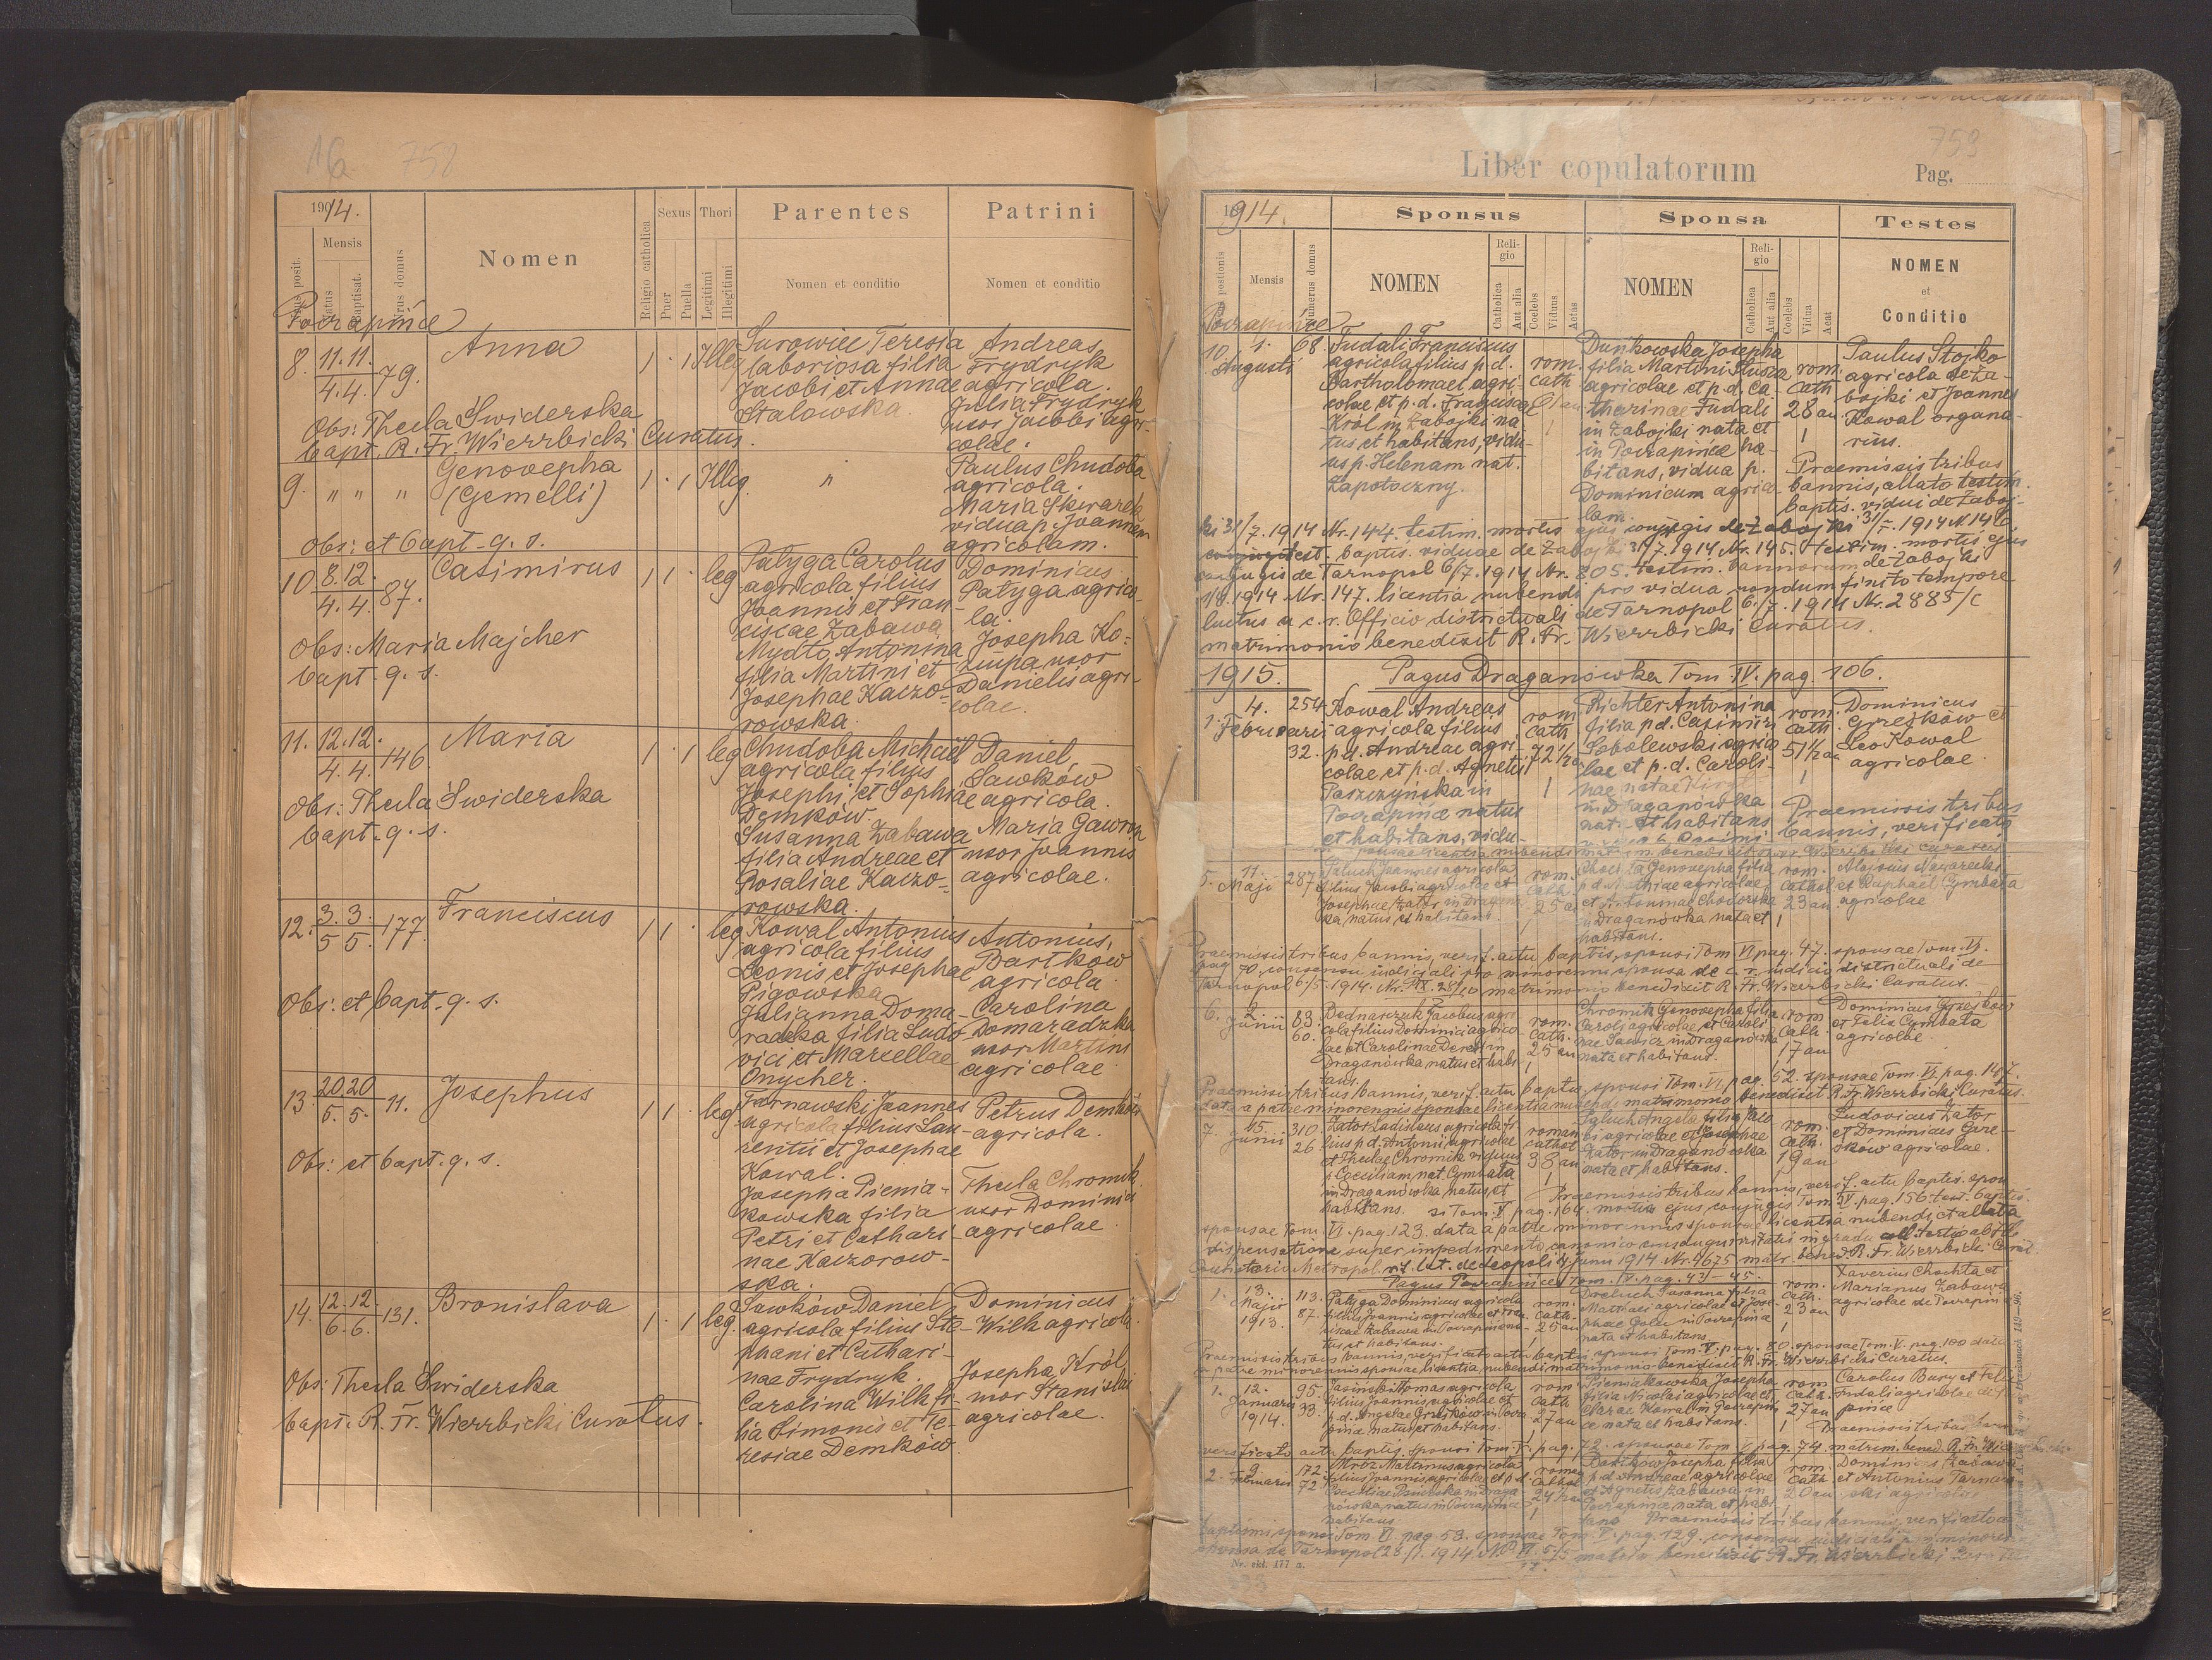 16 752
1904/14.
Mensis
Natus
Baptisat.
Nomen
Religio catholica
Sexus
Puer
Puella
Thori
Legitimi
Illegitimi
Parentes
Nomen et conditio
Patrini
Nomen et conditio
Poczapińce
8. 11.11. 4.4. 79. Anna 1 · 1 Illeg Surowiec Teresia Andreas
laboriosa filia Frydryk
Jacobi et Annae agricola.
Stalowska. Julia Frydryk
Obs: Thecla Swiderska uxor Jacobi agri-
bapt. R. Fr. Wierzbicki Curatus. colae.
9. " " " Genovepha 1 · 1 Illeg. " Paulus Chudoba
(Gemelli) agricola.
Maria Skwarek
vidua p. Joannem
Obs: et bapt. q. s. agricolam.
10 8.12. 4.4. 87. Casimirus 1 1 · leg Patyga Carolus Dominicus
agricola filius Patyga agrico-
Joannis et Fran- la.
ciscae Zabawa
Obs: Maria Majcher Mydło Antonina Josepha Ko-
bapt. q. s. filia Martini et żupa uxor
Josephae Kaczo- Danielis agri-
rowska. colae.
11. 12.12. 4.4. 146 Maria 1 · 1 leg Chudoba Michael Daniel
agricola filius Sawków
Obs: Thecla Swiderska Josephi et Sophiae agricola.
bapt. q. s. Demków.
Susanna Zabawa Maria Gawron
filia Andreae et uxor Joannis
Rosaliae Kaczo- agricolae.
rowska.
12. 3.3. 5 5. 177. Franciscus 1 1 · leg Kowal Antonius Antonius
agricola filius Bartków
Leonis et Josephae agricola
Pigowska
Obs: et bapt. q. s. Julianna Doma- Carolina
radzka filia Ludo- Domaradzka
vici et Marcellae uxor Martini
Onycher. agricolae
13. 20.20 5.5. 11. Josephus 1 1 · leg Tarnawski Joannes Petrus Demków
agricola filius Lau- agricola.
rentii et Josephae
Obs: et bapt. q. s. Kowal.
Josepha Pienia- Thecla Chromik
kowska filia uxor Dominici
Petri et Cathari- agricolae
nae Kaczorow-
ska.
14. 12.12. 6.6. 131. Bronislava 1 · 1 leg. Sawków Daniel Dominicus
agricola filius Ste- Wilk agricola
phani et Cathari-
nae Frydryk. Josepha Król
Obs: Thecla Swiderska Carolina Wilk fi- uxor Stanislai
bapt. R. Fr. Wierzbicki Curatus. lia Simonis et Te- agricolae.
resiae Demków.
753
Liber copulatorum
Pag.
1914.
Mensis
Numerus domus
Sponsus
NOMEN
Religio
Catholica
Aut alia
Coelebs
Viduus
Aetas
Sponsa
NOMEN
Religio
Catholica
Aut alia
Coelebs
Vidua
Aetas
Testes
NOMEN
et
Conditio
Poczapińce
10 Augusti 68. Fudali Franciscus Dańkowska Josepha Paulus Stojko
agricola filius p.d. rom. filia Martini rom. agricola de Za-
Bartholomaei agri- cath agricolae et p.d. Ca- cath bojki et Joannes
colae et p.d. Franciscae 61 an tharinae Fudali 28 an. Kowal organa-
Król in Zabojki na- 1 in Zabojki nata et 1 rius.
tus et habitans, vidu- in Poczapińce ha-
us p. Helenam nat. bitans, vidua p. Praemissis tribus
Zapotoczny. Dominicum agrico- bannis, allato testim.
lam. baptis. vidui de Zaboj-
ki 31/7. 1914 Nr. 144. testim. mortis ejus conjugis de Zabojki 31/7. 1914 N. 146.
test. baptis. viduae de Zabojki 31/7. 1914 Nr. 145. testim. mortis ejus
conjugis de Tarnopol 6/7. 1914 Nr. 805. testim. bannorum de Zabojki
1/8. 1914 Nr. 147. licentia nubendi pro vidua nondum finito tempore
luctus a c. r. Officio districtuali de Tarnopol 6./7. 1914 Nr. 2885/c
matrimonio benedixit R. Fr. Wierzbicki Curatus.
1915. Pagus Draganówka Tom IV. pag. 106.
1. 4. Februarii 254 32. Kowal Andreas rom Richter Antonina rom. Dominicus
agricola filius cath filia p.d. Casimiri cath. Grześków et
p.d. Andreae agri- 72 1/2 an Sobolewski agrico- 51 1/2 an Leo Kowal
colae et p.d. Agnetis lae et p.d. Caroli- agricolae.
Paszczyńska in 1 nae natae 1
Poczapińce natus in Draganówka Praemissis tribus
et habitans, vidu- nata et habitans bannis, verificato
5. 11. Maji 287 Paluch Joannes agricola rom. Genovepha filia rom. Aloisius Nawarecki
filius Jacobi agricolae et cath. p.d. Mathiae agricolae cathol et Raphael Cymbała
Josephae Zator in Dragan- 25 an et Antoninae Chodorska 23 an. agricolae
ka natus et habitans. 1 in Draganówka nata et 1
habitans.
Praemissis tribus bannis, verif. actu baptis. sponsi Tom VI pag. 47. sponsae Tom. VI.
pag 70. consensu iudiciali pro minorenni sponsa de c. r. iudicio districtuali de
Tarnopol 6/5. 1914. Nr. P IX. 28/10 matrimonio benedixit R. Fr. Wierzbicki Curatus.
6. 2. Junii 83. 60. Bednarczuk Jacobus agri- rom. Chromik Genovepha filia rom Dominicus Grześków
cola filius Dominici agrico- cath. Caroli agricolae et Caroli- cath. et Felix Cymbała
lae et Carolinae Dereń in 25 an nae Sawicz in Draganówka 17 an agricolae
Draganówka natus et habi- 1 nata et habitans.
tans.
Praemissis tribus bannis, verif. actu baptis. sponsi Tom. VI. pag. 52. sponsae Tom. VI. pag. 147.
data a patre minorennis sponsae licentia nubendi, matrimonio benedixit R. Fr. Wierzbicki Curatus.
7. 15. Junii 310. 26. Zator Ladislaus agricola fi- roman Paluch Angela filia Jaco- rom. Ludovicus Zator
lius p.d. Antonii agricolae cathol bi agricolae et Josephae cath. et Dominicus Grze-
et Theclae Chromik viduus 38 an Zator in Draganówka 19 an śków agricolae.
p. Coeciliam nat. Cymbała 1 nata et habitans.
in Draganówka natus et Praemissis tribus bannis, verif. actu baptis. spon-
habitans. si Tom. V. pag. 164. mortis ejus conjugis Tom. IV. pag. 156. test. baptis.
sponsae Tom. VI. pag. 123. data a patre minorennis sponsae licentia nubendi et allata
dispensatione super impedimento canonico consanguinitatis in gradu
Consistorio Metropol. rit. lat. de Leopoli Junii 1914. Nr. 4675 matr. bened. R. Fr. Wierzbicki Curat.
Pagus Poczapińce Tom. IV. pag. 43-45.
1. 13. Maji 1913. 113. 87. Patyga Dominicus agricola rom. Dreluch Susanna filia rom. Xaverius Chochta et
filius Joannis agricolae et Fran- cath. Matthaei agricolae et Jose- cath. Marianus Zabawa
ciscae Zabawa in Poczapińce na- 25 an phae in Poczapińce 23 an agricolae de Poczapińce
tus et habitans. nata et habitans. 1
Praemissis tribus bannis, verificato actu baptis. sponsi Tom. V. pag. 80. sponsae Tom. V. pag. 100 data
a patre minorennis sponsae licentia nubendi matrimonio benedixit R. Fr. Wierzbicki Curatus.
1. 12. Januarii 1914. 95. 33. Jasiński Thomas agricola rom Pieniakowska Josepha rom Carolus Bury et Felix
filius Joannis agricolae et cath filia Nicolai agricolae et cath. Fudali agricolae de Po-
p.d. Angelae Grześków in Pocza- 27 an Clarae Kowal in Poczapiń- 27 an pińce
pińce natus et habitans. 1 ce nata et habitans. 1 Praemissis tribus
verificato actu baptis. sponsi Tom. V. pag. 72. sponsae Tom. V. pag. 74 matrim. bened. R. Fr. Wie
2. 9. Februarii 172 72 Mróz Martinus agricola roman Bartków Josepha filia rom. Dominicus Zabawa
filius Joannis agricolae et p.d. cathol p.d. Andreae agricolae cath. et Antonius Tarnaw-
Coeciliae in Draga- 24 1/2 an et Agnetis Zabawa in 20 an. ski agricolae
nówka natus in Poczapińce 1 Poczapińce nata et habi-
habitans. tans Praemissis tribus bannis, verificato
baptismi sponsi Tom. VI. pag. 53. sponsae Tom. V. pag. 129. consensu iudiciali p. minoren
sponsa de Tarnopol 28/1. 1914. matrim. benedixit R. Fr. Wierzbicki
Nr. skł. 177 a.